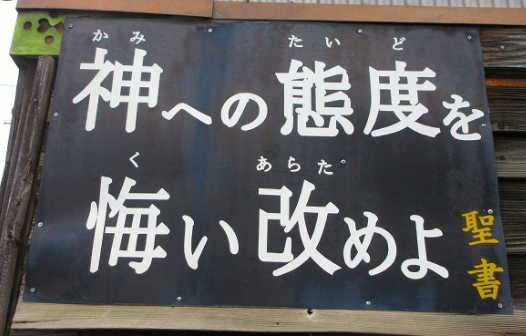 かみ たいど
神への態度を
く あらた
悔い改めよ
聖書